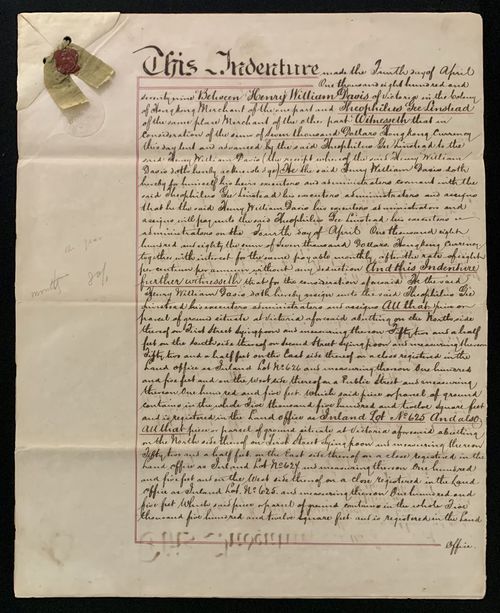 This Indenture made the Fourth day of April
One thousand eight hundred and
seventy nine Between Henry William Davis of Victoria in the Colony
of Hongkong Merchant of the one part and Theophilus Gee Linstead
of the same place Merchant of the other part Witnesseth that in
consideration of the sum of seven thousand Dollars Hongkong Currency
this day lent and advanced by the said Theophilus Gee Linstead to the
said Henry William Davis (the receipt whereof the said Henry William
Davis doth hereby acknowledge) He the said Henry William Davis doth
hereby for himself his heirs executors and administrators covenant with the
said Theophilus Gee Linstead his executors administrators and assigns
that he the said Henry William Davis his executors administrators and
assigns will pay unto the said Theophilus Gee Linstead his executors or
administrators on the Fourth day of April One thousand eight
hundred and eighty the sum of Seven thousand Dollars Hongkong Currency
together with interest for the same payable monthly after the rate of eight
per centum per annum without any deduction And this Indenture
further witnesseth that for the consideration aforesaid He the said
Henry William Davis doth hereby assign unto the said Theophilus Gee
Linstead his executors administrators and assigns All that piece or
parcel of ground situate at Victoria aforesaid abutting on the North side
thereof on Third Street Syingpoon and measuring thereon Fifty two and a half
feet on the South side thereof on Second Street Syingpoon and measuring thereon
Fifty two and a half feet on the East side thereof on a close registered in the
Land Office as Inland Lot No. 626 and measuring thereon One hundred
and five feet and on the West side thereof on a Public Street and measuring
thereon One hundred and five feet Which said piece or parcel of ground
contains in the whole Five thousand five hundred and twelve square feet
and is registered in the Land Office as Inland Lot No. 625 And also
All that piece or parcel of ground situate at Victoria aforesaid abutting
on the North side thereof on Third Street Syingpoon and measuring thereon
Fifty two and a half feet, on the East side thereof on a close registered in the
Land Office as Inland Lot No. 627 and measuring thereon One hundred
and five feet and on the West side thereof on a close registered in the Land
Office as Inland Lot No. 625 and measuring thereon One hundred and
five feet Which said piece or parcel of ground contains in the whole Five
thousand five hundred and twelve square feet and is registered in the Land
Office